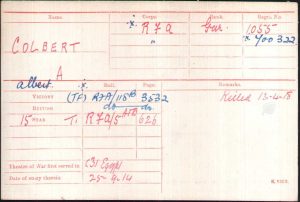 Name. Corps. Rank. Regtl. No.
COLBERT x. R F A Gnr. 1055
" x 400322
A
albert.
Medal. Roll. Page. Remarks.
VICTORY (TF) RFA/115B 3532 Killed 13-4-18
BRITISH do do
15 STAR T. RFA/5 626
Theatre of War first served in (3) Egypt
Date of entry therein 25-9-14
K. 1380.